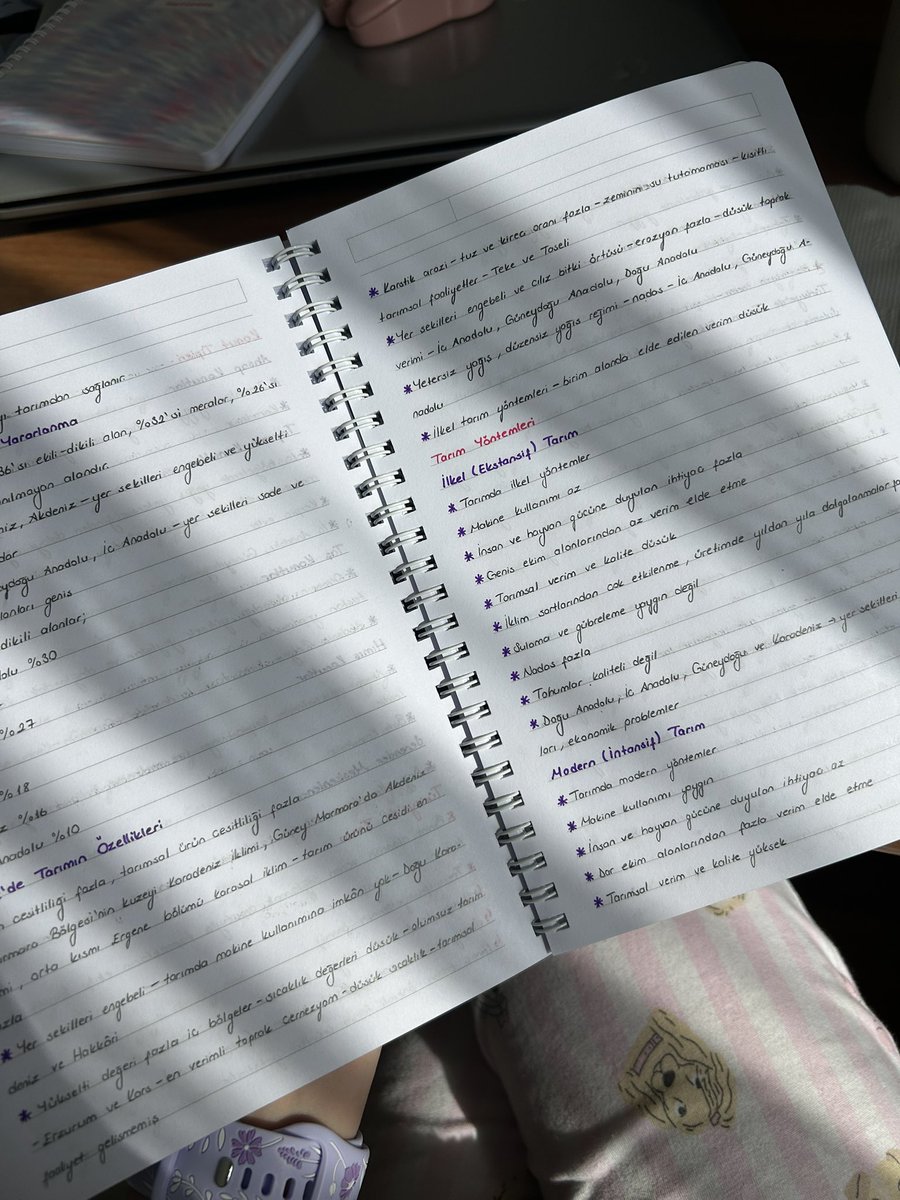 tarımdan sağlanır.
Yararlanma
36'sı ekili-dikili alan, %32'si meralar, %26'sı
alandır.
Akdeniz - yer şekilleri engebeli ve yükselti
Anadolu, İc Anadolu - yer sekilleri sade ve
genis
dikili alanlar;
%30
%27
%18
%16
Anadolu %10
'de Tarımın Özellikleri
cesitliliği fazla, tarımsal ürün cesitliliği fazla
Bölgesi'nin kuzeyi Karadeniz iklimi, Güney Marmara'da Akdeniz
, orta kısmı Ergene bölümü karasal iklim - tarım ürünü cesidi en
* Yer sekilleri engebeli - tarımda makine kullanımına imkân yok - Doğu Kara-
deniz ve Hakkâri
* Yükselti değeri fazla ic bölgeler - sıcaklık değerleri düsük - olumsuz tarım
- Erzurum ve Kars - en verimli toprak cernezyom - düsük sıcaklık - tarımsal
faaliyet gelismemis
* Karstik arazi - tuz ve kirec oranı fazla - zeminin su tutamaması - kısıtlı
tarımsal faaliyetler - Teke ve Taseli
* Yer sekilleri engebeli ve cılız bitki örtüsü - erozyon fazla - düsük toprak
verimi - İc Anadolu, Güneydoğu Anadolu, Doğu Anadolu
* Yetersiz yağıs, düzensiz yağıs rejimi - nadas - İc Anadolu, Güneydoğu A-
nadolu
* İlkel tarım yöntemleri - birim alanda elde edilen verim düsük
Tarım Yöntemleri
İlkel (Ekstansif) Tarım
* Tarımda ilkel yöntemler
* Makine kullanımı az
* İnsan ve hayvan gücüne duyulan ihtiyac fazla
* Genis ekim alanlarından az verim elde etme
* Tarımsal verim ve kalite düsük
* İklim sartlarından cok etkilenme, üretimde yıldan yıla dalgalanmalar
* Sulama ve gübreleme yaygın değil
* Nadas fazla
* Tohumlar kaliteli değil
* Doğu Anadolu, İc Anadolu, Güneydoğu ve Karadeniz → yer sekilleri
ları, ekonomik problemler
Modern (İntansif) Tarım
* Tarımda modern yöntemler
* Makine kullanımı yaygın
* İnsan ve hayvan gücüne duyulan ihtiyac az
* Dar ekim alanlarından fazla verim elde etme
* Tarımsal verim ve kalite yüksek